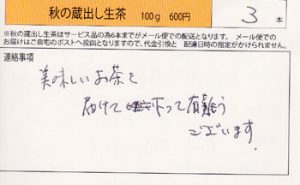 秋の蔵出し生茶 100g 600円 3本
※秋の蔵出し生茶はサービス品の為6本までがメール便での配送となります。 メール便での
お届けはご自宅のポストへ投函となりますので、代金引換と 配達日時の指定がかけられません。
連絡事項
美味しいお茶を
届けて下って有難う
ございます。